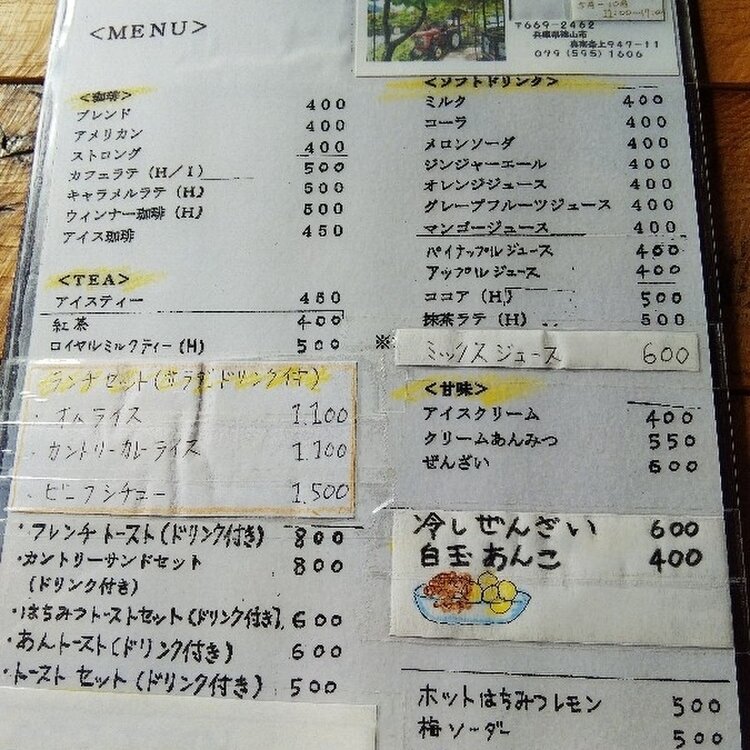 <MENU>
<珈琲>
ブレンド 400
アメリカン 400
ストロング 400
カフェラテ(H/I) 500
キャラメルラテ(H) 500
ウィンナー珈琲(H) 500
アイス珈琲 450
<TEA>
アイスティー 450
紅茶 400
ロイヤルミルクティー(H) 500
ランチセット(サラダ ドリンク付)
・オムライス 1,100
・カントリーカレーライス 1,100
・ビーフシチュー 1,500
・フレンチトースト(ドリンク付き) 800
・カントリーサンドセット 800
(ドリンク付き)
・はちみつトーストセット(ドリンク付き) 600
・あんトースト(ドリンク付き) 600
・トーストセット(ドリンク付き) 500
5月-10月
〒669-2462
兵庫県篠山市
079(595)1606
<ソフトドリンク>
ミルク 400
コーラ 400
メロンソーダ 400
ジンジャーエール 400
オレンジジュース 400
グレープフルーツジュース 400
マンゴージュース 400
パイナップルジュース 400
アップルジュース 400
ココア(H) 500
抹茶ラテ(H) 500
※ミックスジュース 600
<甘味>
アイスクリーム 400
クリームあんみつ 550
ぜんざい 600
冷しぜんざい 600
白玉あんこ 400
ホットはちみつレモン 500
梅ソーダー 500